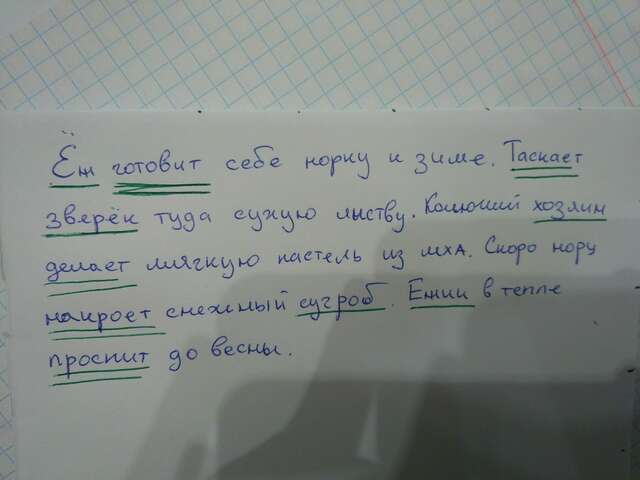 Ёж готовит себе норку к зиме. Таскает
зверёк туда сухую листву. Колючий хозяин
делает мягкую пастель из мха. Скоро нору
накроет снежный сугроб. Ёжик в тепле
проспит до весны.